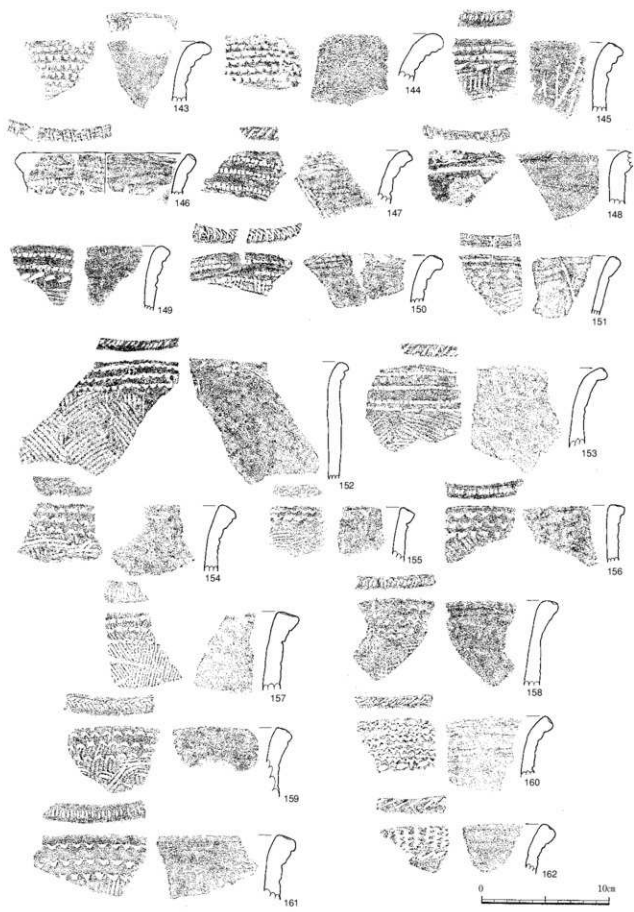 143
144
145
146
147
148
149
150
151
152
153
154
155
156
157
158
159
160
161
162
0 10cm